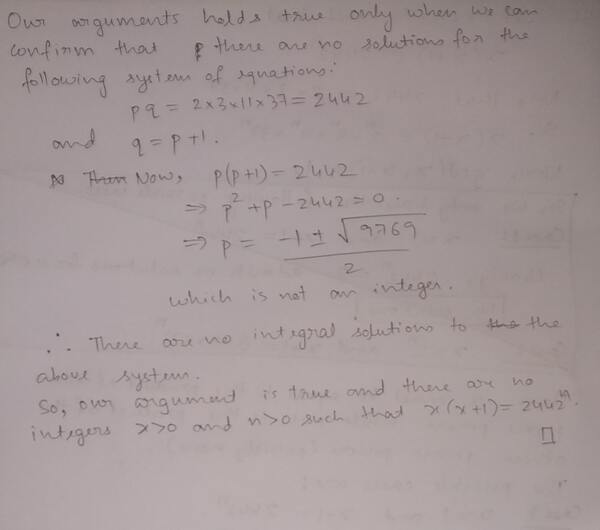 Our arguments holds true only when we can
confirm that there are no solutions for the
following system of equations:
pq = 2×3×11×37 = 2442
and q = p+1.
Then Now, p(p+1) = 2442
⇒ p² + p - 2442 = 0.
⇒ p = (-1 ± √9769) / 2
which is not an integer.
∴ There are no integral solutions to the the
above system.
So, our argument is true and there are no
integers x>0 and n>0 such that x(x+1) = 2442ⁿ.
□